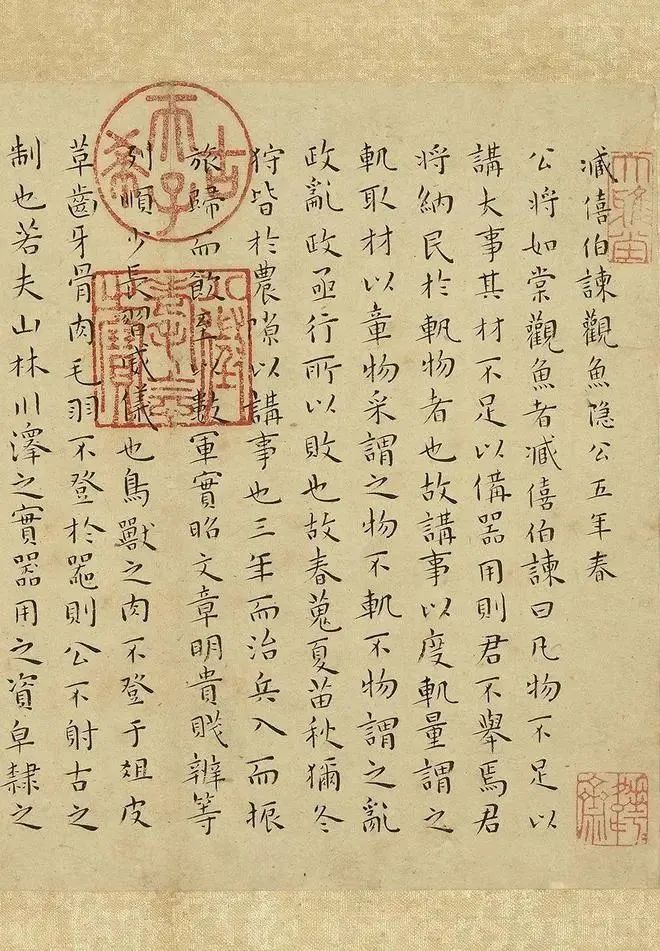 臧僖伯諫觀魚隐公五年春
公將如棠觀魚者臧僖伯諫曰凡物不足以
講大事其材不足以俻器用則君不舉焉君
將納民於軌物者也故講事以度軌量謂之
軌取材以章物采謂之物不軌不物謂之亂
政亂政亟行所以敗也故春蒐夏苗秋獮冬
狩皆於農隙以講事也三年而治兵入而振
旅歸而飲至以數軍實昭文章明貴賤辨等
列順少長習威儀也鳥獸之肉不登于俎皮
草齒牙骨肉毛羽不登於器則公不射古之
制也若夫山林川澤之實器用之資皁隸之
古希天子